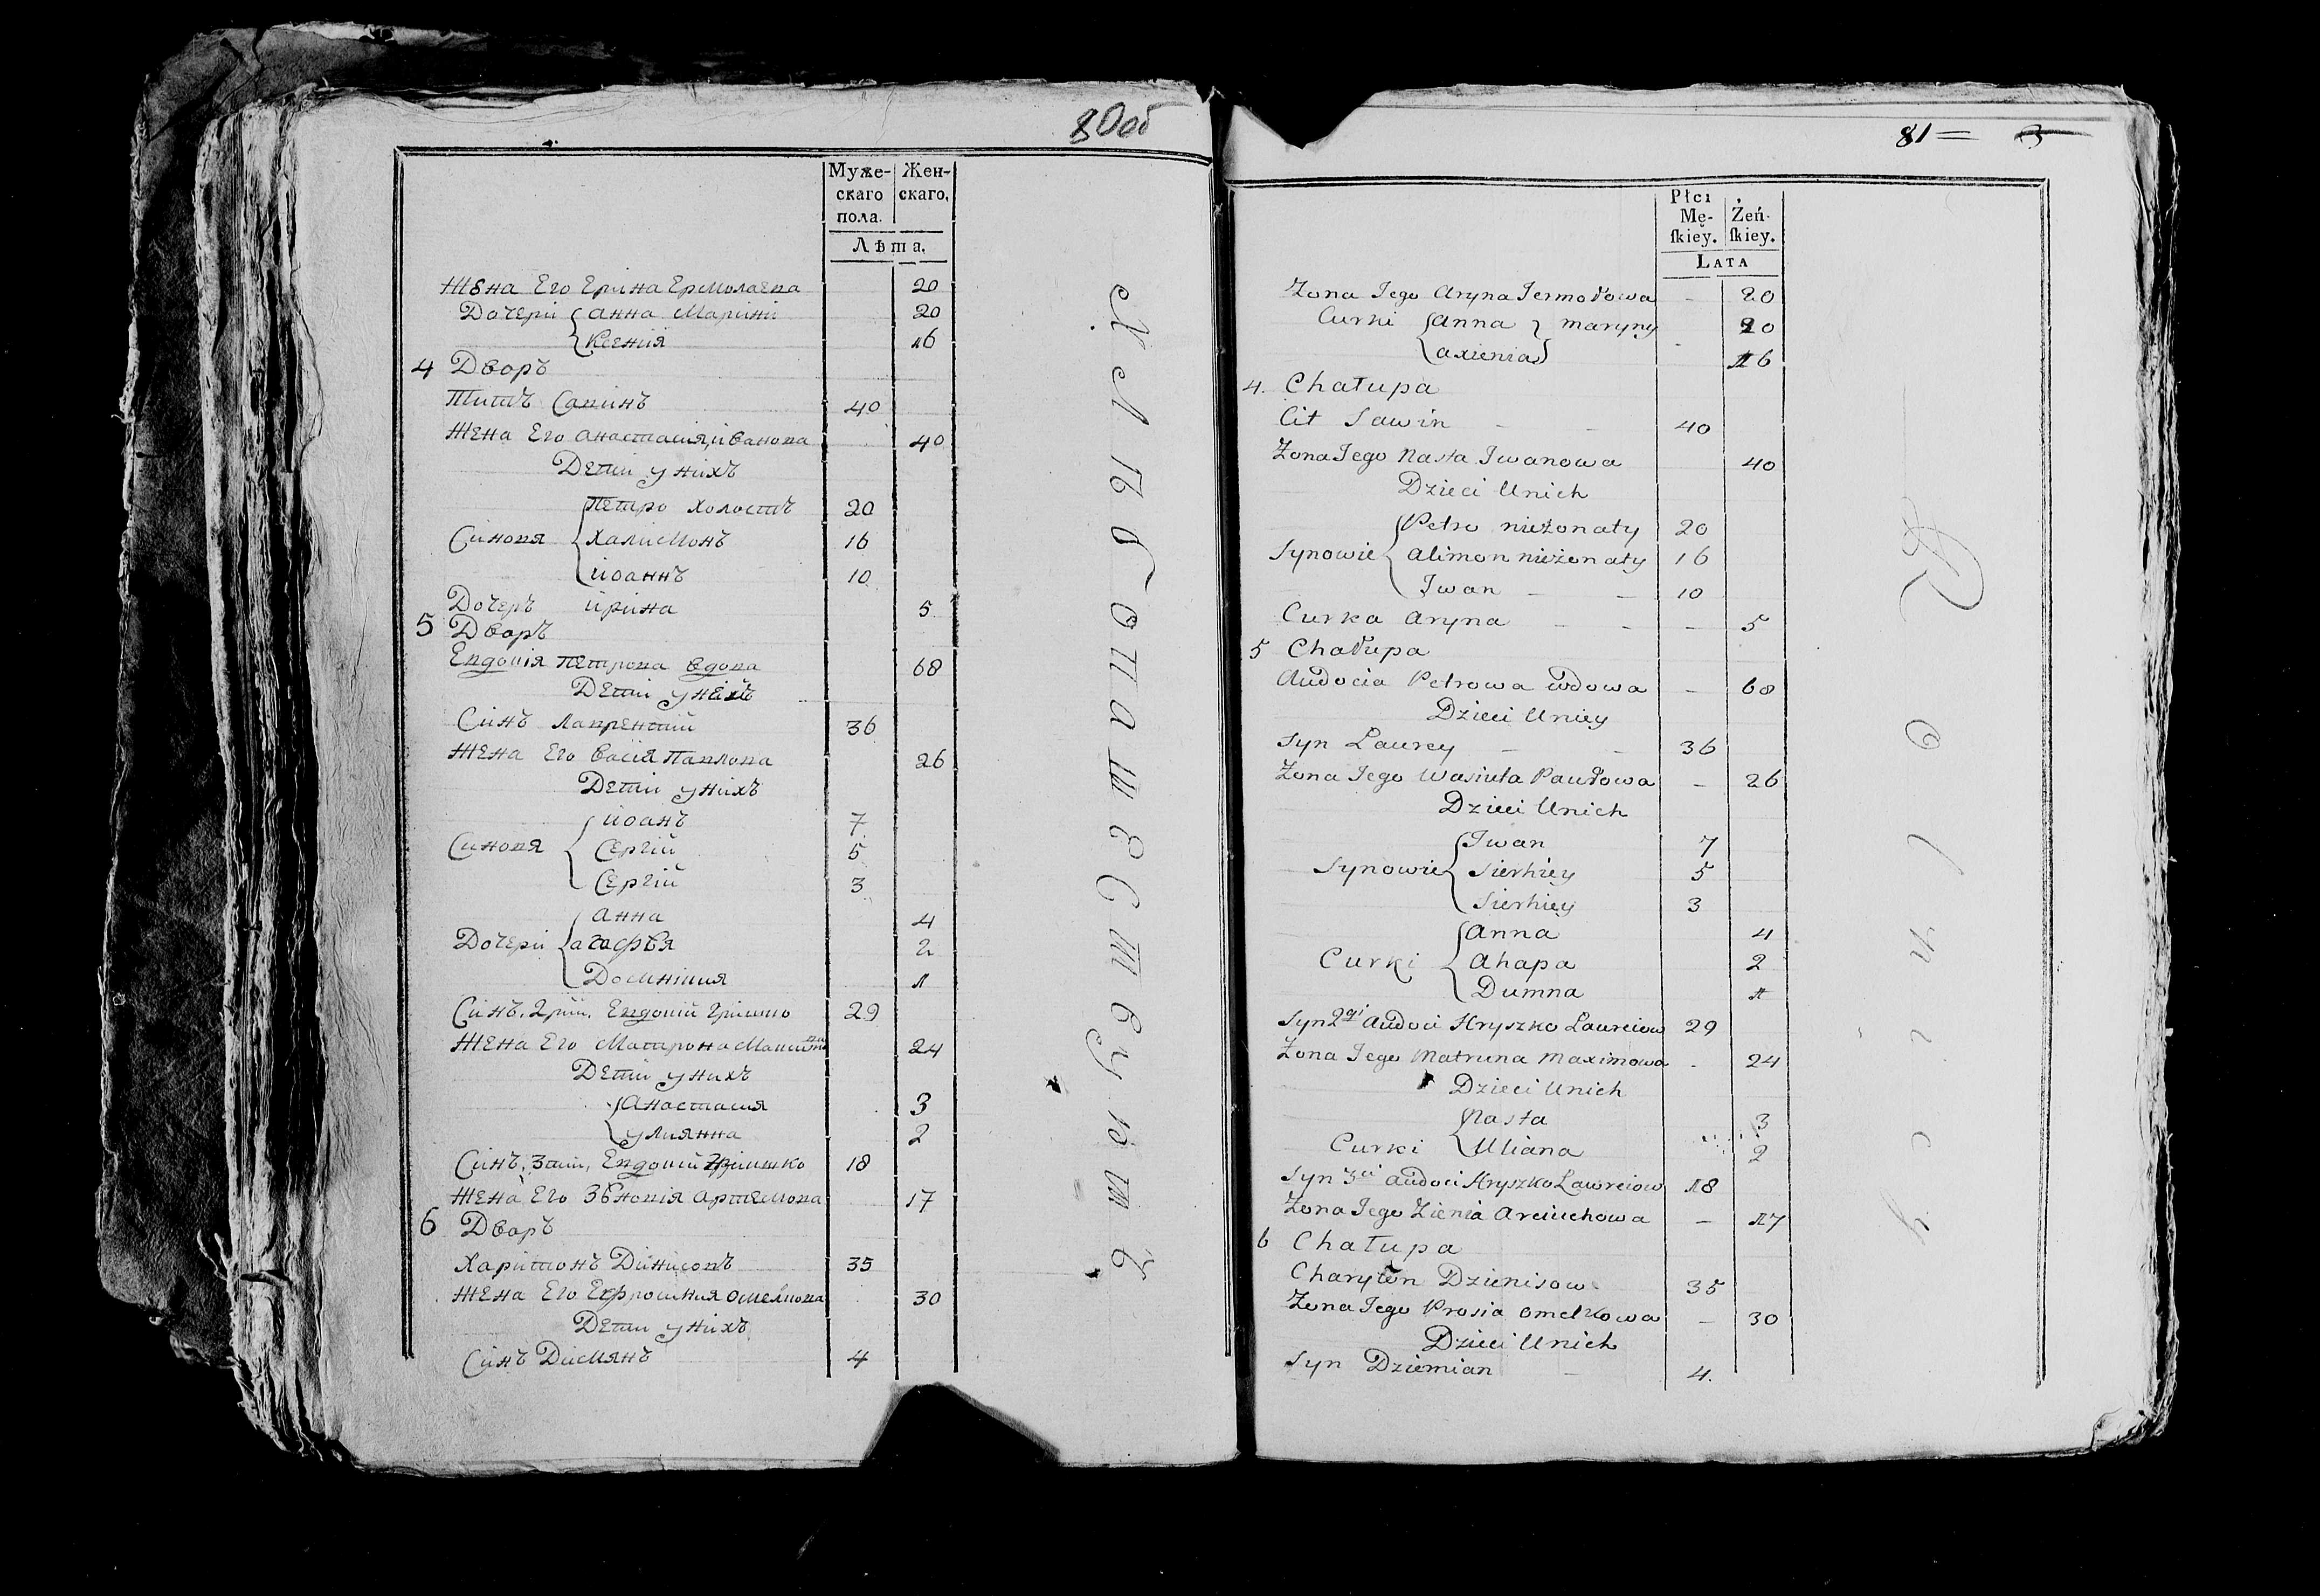 80об
Муже-
скаго
пола.
Жен-
скаго.
Лѣта.
Жена Его Ерина Ермолаева 20
Дочери Анна Марини 20
Ксения 16
4 Дворъ
Титъ Савинъ 40
Жена Его Анастасия Иванова 40
Дети у нихъ
Петро холостъ 20
Синовя Халимонъ 16
Иоаннъ 10
Дочеръ Ирина 5
5 Дворъ
Евдокия Петрова вдова 68
Дети у нихъ
Синъ Лаврентий 36
Жена Его Васия Павлова 26
Дети у нихъ
Иоанъ 7
Синовя Сергий 5
Сергий 3
Анна 4
Дочери Агафья 2
Домникия 1
Синъ, 2рий, Евдокии Гришко 29
Жена Его Матрона 24
Дети у нихъ
Анастасия 3
Улиянна 2
Синъ, 3тии, Евдокии Гришко 18
Жена Его Зѣновия Артемова 17
6 Дворъ
Харитонъ Динисовъ 35
Жена Его Ефросиния Омелкова 30
Дети у нихъ
Синъ Димянъ 4
Хлѣбопашествуютъ
81 3
Płci
Mę-
ſkiey.
Żeń-
ſkiey.
LATA
Zona Jego Aryna Jermołowa - 20
Curki Anna maryny 20
Axienia - 16
4. Chałupa
Cit Sawin - - 40
Zona Jego Nasta Jwanowa 40
Dzieci Unich
Petro nieżonaty 20
Synowie Alimon nieżonaty 16
Jwan - - 10
Curka Aryna - - - 5
5 Chałupa
Audocia Petrowa wdowa - 68
Dzieci Uniey
Syn Laurey - - 36
Zona Jego Wasiuta Pawłowa - 26
Dzieci Unich
Jwan 7
Synowie Sierhiey 5
Sierhiey 3
Anna 4
Curki Ahapa 2
Dumna 1
Syn 2gi Audoci Hryszko Laureiow 29
Zona Jego Matruna Maximowa - 24
Dzieci Unich
Nasta 3
Curki Uliana 2
Syn 3ci Audoci Hryszko Lawreiow 18
Zona Jego Zienia Arciuchowa - 17
6 Chałupa
Charyton Dzienisow 35
Zona Jego Prosia Omelkowa - 30
Dzieci Unich
Syn Dziemian - 4.
Rolnicy